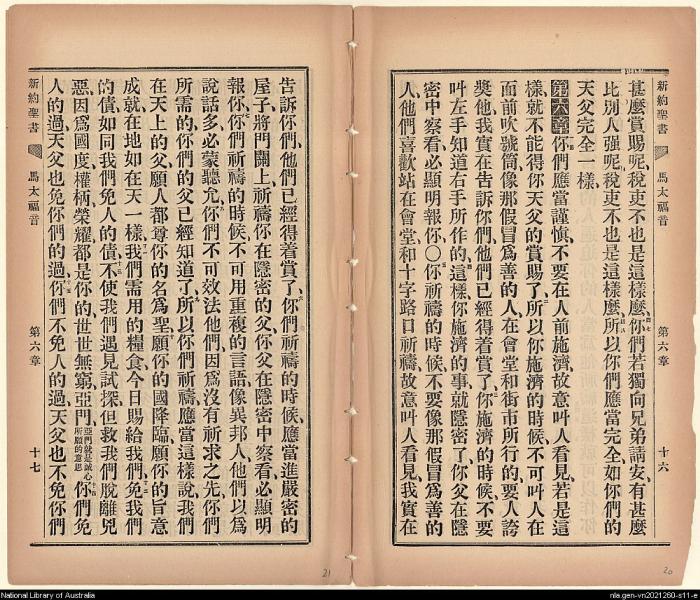 新約聖書 馬太福音 第六章 十六
甚麽賞賜呢、稅吏不也是這樣麽、你們若獨向兄弟請安、有甚麽
比別人强呢、稅吏不也是這樣麽、所以你們應當完全、如你們的
天父完全一樣、
第六章你們應當謹愼、不要在人前施濟、故意叫人看見、若是這
樣、就不能得你天父的賞賜了、所以你施濟的時候、不可叫人在
面前吹號筒、像那假冒爲善的人、在會堂和街市所行的、要人誇
獎他、我實在告訴你們、他們已經得着賞了、你施濟的時候、不要
叫左手知道右手所作的、這樣你施濟的事就隱密了、你父在隱
密中察看、必顯明報你、○你祈禱的時候、不要像那假冒爲善的
人、他們喜歡站在會堂和十字路口祈禱、故意叫人看見、我實在
告訴你們、他們已經得着賞了、你們祈禱的時候、應當進嚴密的
屋子、將門關上、祈禱你在隱密的父、你父在隱密中察看、必顯明
報你、你們祈禱的時候、不可用重複的言語、像異邦人、他們以爲
說話多、必蒙聽允、你們不可效法他們、因爲沒有祈求之先、你們
所需的、你們的父已經知道了、所以你們祈禱應當這樣說、我們
在天上的父、願人都尊你的名爲聖、願你的國降臨、願你的旨意
成就在地、如在天一樣、我們需用的糧食、今日賜給我們、免我們
的債、如同我們免人的債、不使我們遇見試探、但救我們脫離兇
惡、因爲國度權柄榮耀、都是你的、世世無窮、亞門、亞門就是誠心所願的意思你們免
人的過、天父也免你們的過、你們不免人的過、天父也不免你們
新約聖書 馬太福音 第六章 十七
21
20
National Library of Australia
nla.gen-vn2021260-s11-e